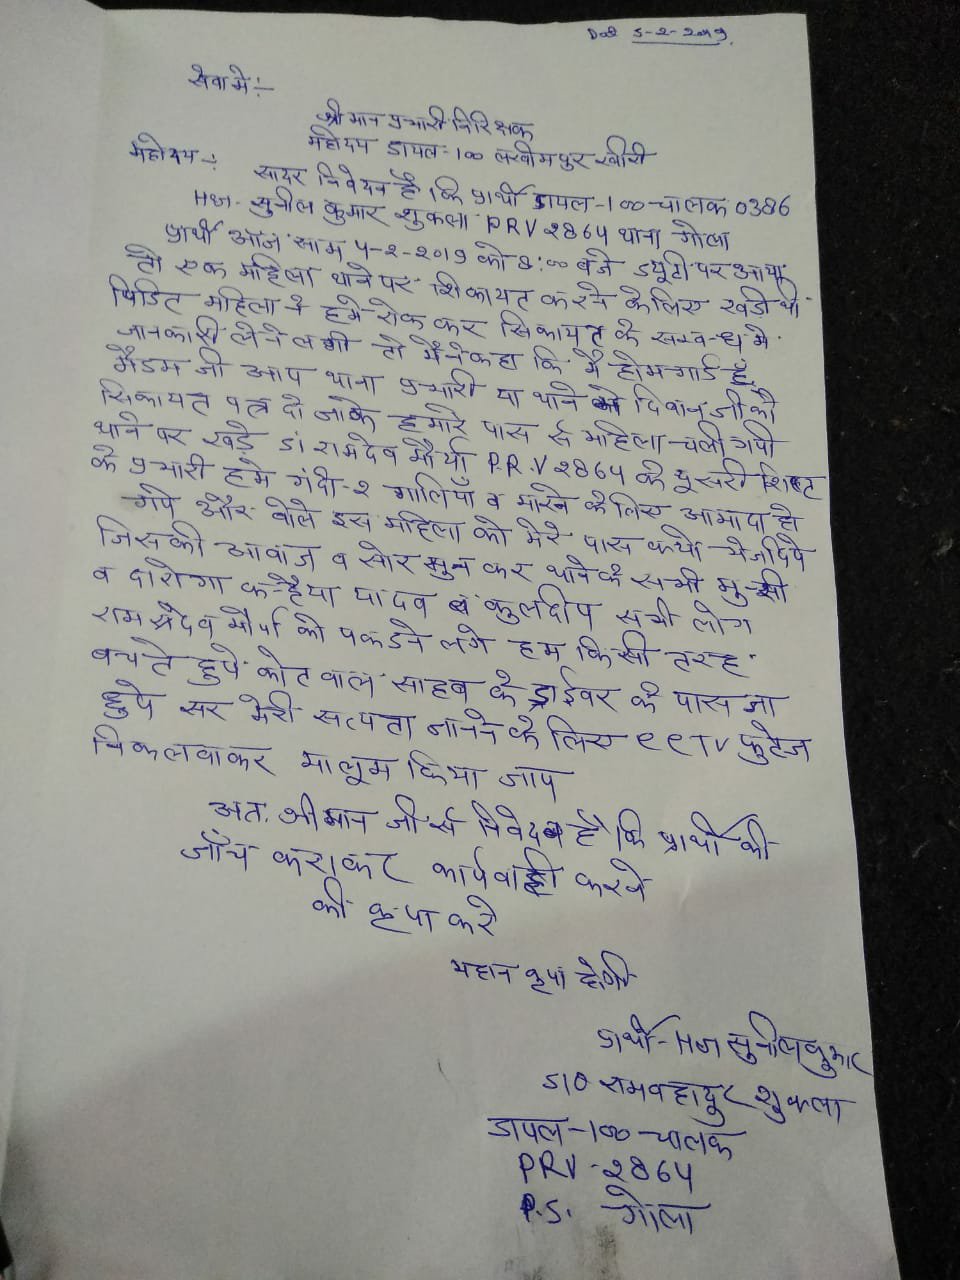 Date 5-2-2019.
सेवा मे:-
श्री मान प्रभारी निरिक्षक
महोदय डायल-100 लखीमपुर खीरी
महोदय:-
सादर निवेदन है कि प्रार्थी डायल-100-चालक 0386
HG. सुनील कुमार शुक्ला PRV 2864 थाना गोला
प्रार्थी आज साम 4-2-2019 को 8:00 बजे ड्यूटी पर आया
तो एक महिला थाने पर शिकायत करने के लिए खड़ी थी
पिडित महिला ने हमे रोक कर सिकायत के सम्बन्ध मे
जानकारी लेने लगी तो मैने कहा कि मै होमगार्ड हूँ
मैडम जी आप थाना प्रभारी या थाने दिवान जी को
सिकायत पत्र दो जाके हमारे पास से महिला चली गयी
थाने पर खड़े रामदेव मौर्या P.R.V 2864 की दूसरी शिफ्ट
के प्रभारी हमे गंदी-2 गालियाँ व मारने के लिए आमादा हो
गये और बोले इस महिला को मेरे पास क्यो भेज दिये
जिसकी आवाज व सोर सुन कर थाने के सभी मुन्सी
व दारोगा कन्हैया यादव व कुलदीप सभी लोग
राम देव मौर्या को पकडने लगे हम किसी तरह
बचते हुये कोटवाल साहब के ड्राईवर के पास जा
हुये सर मेरी सत्यता जानने के लिए CCTV फुटेज
निकलवाकर मालूम किया जाय
अत. श्री मान जी से निवेदन है कि प्रार्थी की
जाँच कराकर कार्यवाही करने
की कृपा करे
महान कृपा होगी
प्रार्थी- HG सुनील कुमार
S/O रामबहादुर शुक्ला
डायल-100-चालक
PRV-2864
P.S. गोला